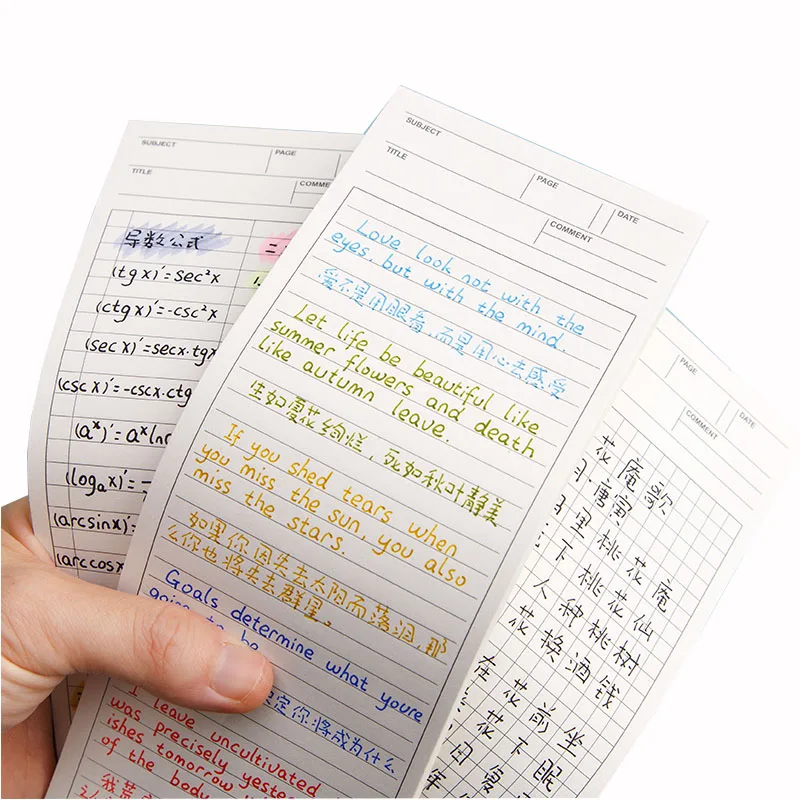 SUBJECT
PAGE
TITLE
COMME
导数公式
二
(tg x)'=sec²x
(ctg x)'=-csc²x
(sec x)'=secx·tgx
(csc x)'=-cscx·ctg
(aˣ)'=aˣln
(logₐx)'=
(arcsinx)'=
(arccosx
SUBJECT
PAGE
DATE
TITLE
COMMENT
Love look not with the
eyes, but with the mind.
爱不是用眼看,而是用心去感受
Let life be beautiful like
summer flowers and death
like autumn leave.
生如夏花绚烂,死如秋叶静美
If you shed tears when
you miss the sun, you also
miss the stars.
如果你因失去太阳而落泪,那
么你也将失去群星。
Goals determine what youre
going to be
定你将成为什么
I leave uncultivated
was precisely yester
ishes tomorrow
of the body
我荒
PAGE
DATE
COMMENT
花庵歌
唐寅
里桃花庵
下桃花仙
人种桃树
花换酒钱
在花前坐
花下眠
复